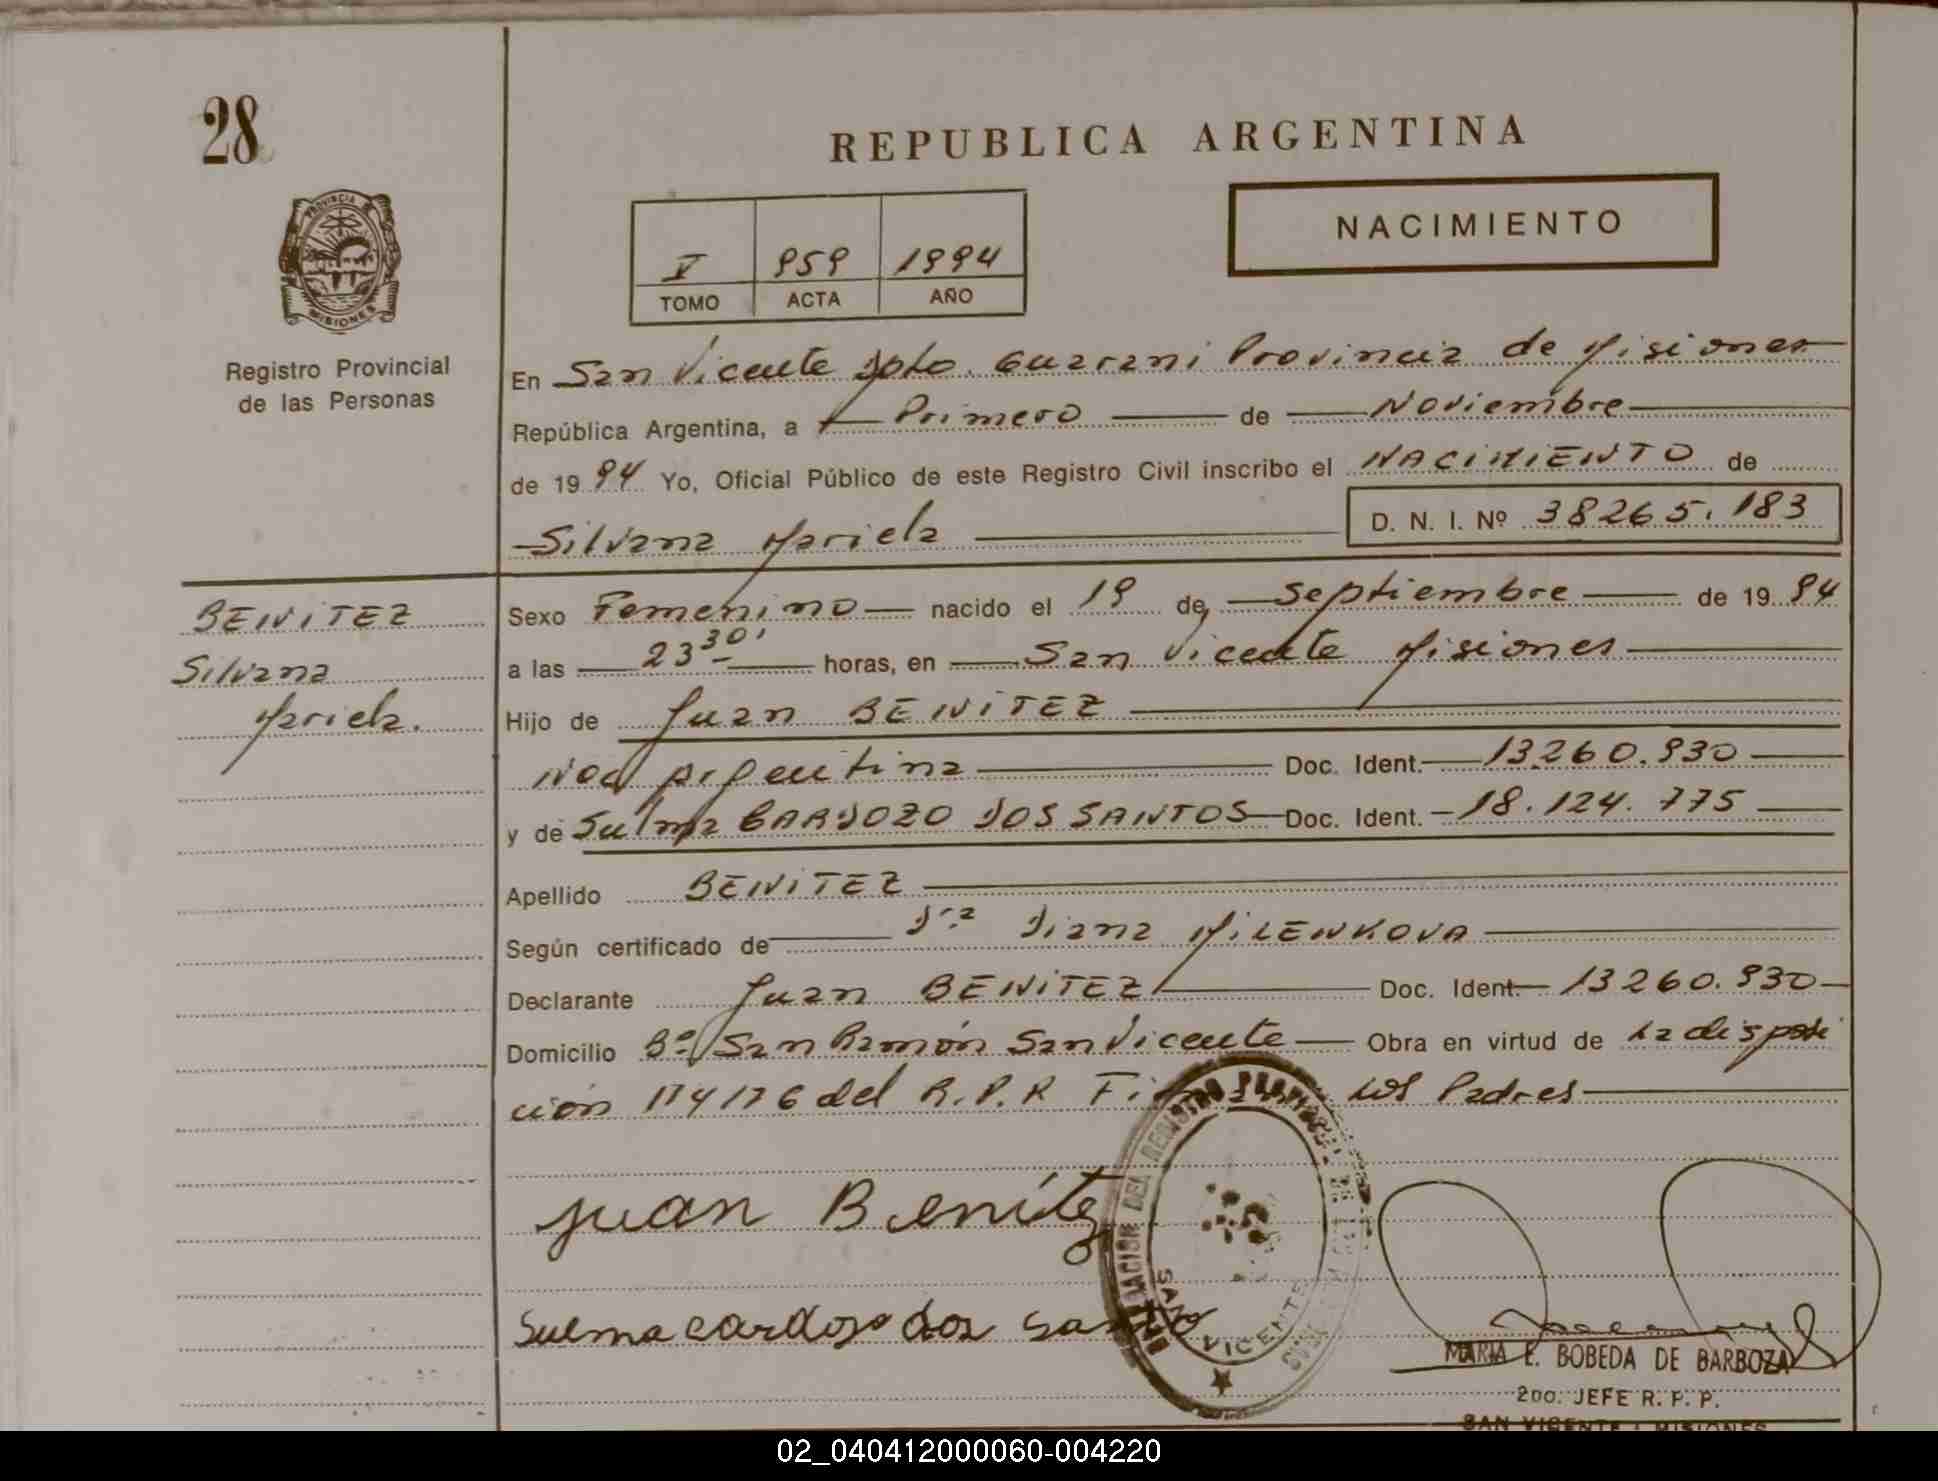 28
REPUBLICA ARGENTINA
PROVINCIA
MISIONES
Registro Provincial
de las Personas
NACIMIENTO
V 959 1994
TOMO ACTA AÑO
En San Vicente Dpto. Guarani Provincia de Misiones
República Argentina, a Primero de Noviembre
de 1994 Yo, Oficial Público de este Registro Civil inscribo el NACIMIENTO de
Silvana Mariela D. N. I. Nº 38265.183
BENITEZ
Silvana
Mariela.
Sexo Femenino nacido el 19 de Septiembre de 1994
a las 23 30' horas, en San Vicente Misiones
Hijo de Juan BENITEZ
Nac Argentina Doc. Ident. 13.260.930
y de Sulma CARDOZO DOS SANTOS Doc. Ident. 18.124.775
Apellido BENITEZ
Según certificado de Dra Diana MILENKOVA
Declarante Juan BENITEZ Doc. Ident. 13260.930
Domicilio Bº San Ramón San Vicente Obra en virtud de La disposi
ción 114/76 del R.P.R los Padres
Juan Benítez
Sulma cardozo dos
DEL REGISTRO
SAN VICENTE
MARIA E. BOBEDA DE BARBOZA
2do. JEFE R. P. P.
SAN VICENTE - MISIONES
02_040412000060-004220